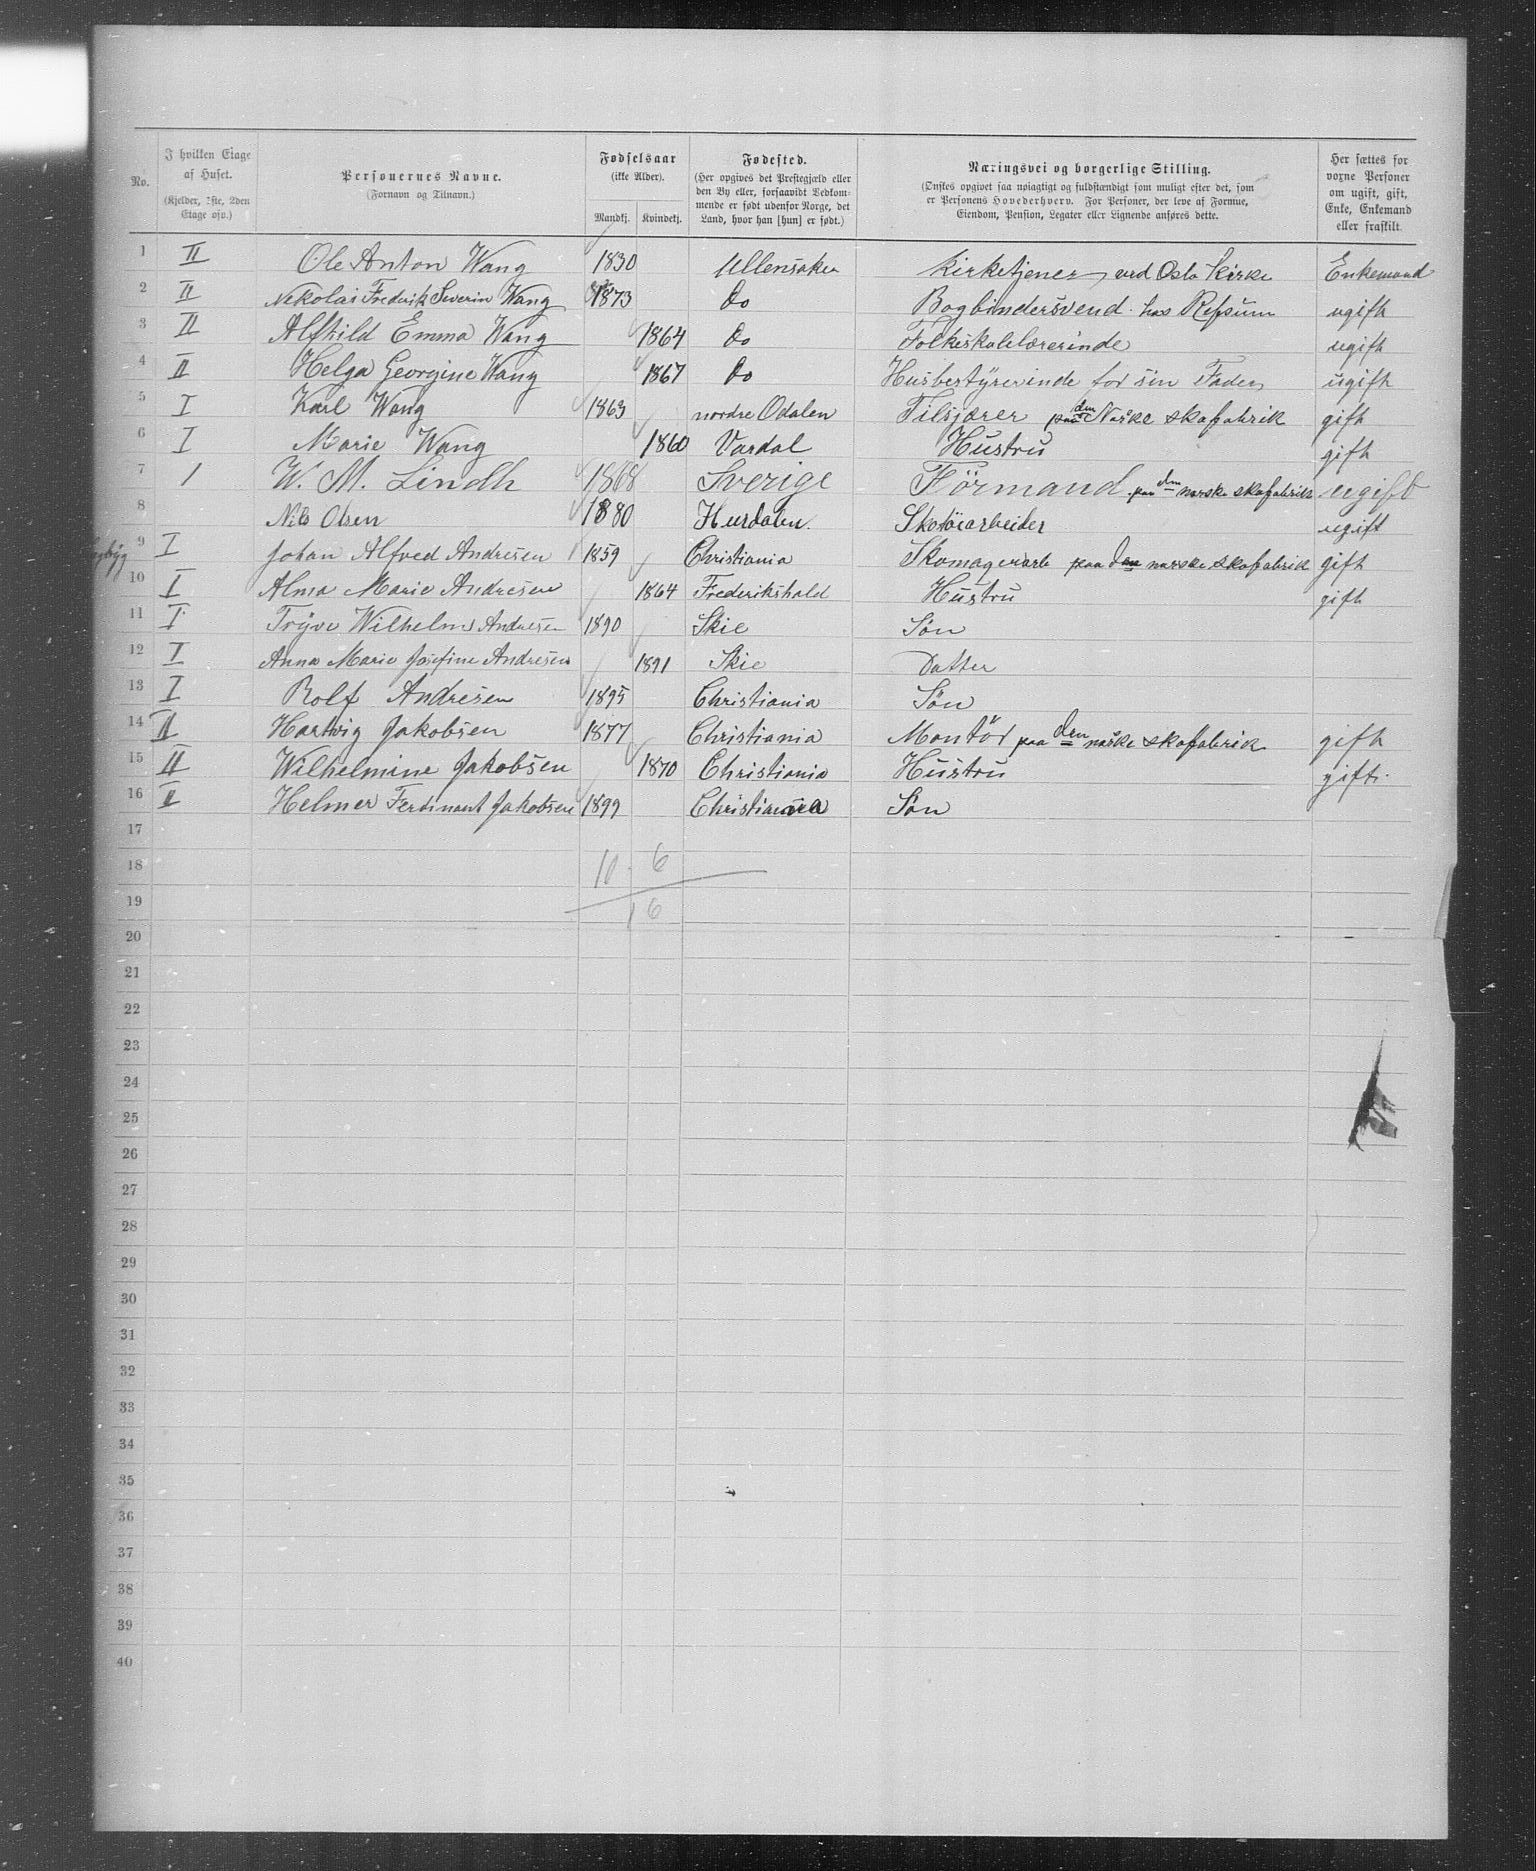 No. | I hvilken Etage af Huset. (Kjelder, 1ste, 2den Etage osv.) | Personernes Navne. (Fornavn og Tilnavn.) | Fødselsaar (ikke Alder). Mandkj. | Kvindekj. | Fødested. (Her opgives det Prestegjæld eller den By eller, forsaavidt Vedkommende er født udenfor Norge, det Land, hvor han [hun] er født.) | Næringsvei og borgerlige Stilling. (Ønskes opgivet saa nøiagtigt og fuldstændigt som muligt efter det, som er Personens Hovederhverv. For Personer, der leve af Formue, Eiendom, Pension, Legater eller Lignende anføres dette. | Her sættes for voxne Personer om ugift, gift, Enke, Enkemand eller fraskilt.
1 | II | Ole Anton Wang | 1830 | | Ullensaker | Kirketjener, ved Oslo Kirke | Enkemand
2 | II | Nikolai Fredrik Severin Wang | 1873 | | Do | Bogbindersvend hos Refsum | ugift
3 | II | Alfhild Emma Wang | | 1864 | Do | Folkeskolelærerinde | ugift
4 | II | Helga Georgine Wang | | 1867 | Do | Husbestyrerinde for sin Fader | ugift
5 | I | Karl Wang | 1863 | | nordre Odalen | Tilsjærer paa den Naske skofabrik | gift
6 | I | Marie Wang | | 1860 | Vardal | Hustru | gift
7 | I | W. M. Lindh | 1868 | | Sverige | Förmand paa den norske skofabrik | ugift
8 | | Nils Olsen | 1880 | | Hurdalen | Skotöiarbeider | ugift
9 | I | Johan Alfred Andresen | 1859 | | Christiania | Skomagerarb paa den norske skofabrik | gift
10 | I | Alma Marie Andresen | | 1864 | Frederikshald | Hustru | gift
11 | I | Trÿve Wilhelm Andresen | 1890 | | Skie | Søn
12 | I | Anna Marie Josefine Andresen | | 1891 | Skie | Datter
13 | I | Rolf Andresen | 1895 | | Christiania | Søn
14 | II | Hartvig Jakobsen | 1877 | | Christiania | Montör paa den naske skofabrik | gift
15 | II | Wilhelmine Jakobsen | | 1870 | Christiania | Hustru | gift.
16 | II | Helmer Ferdinant Jakobsen | 1899 | | Christiania | Søn
17
18 10 - 6
19 16
20
21
22
23
24
25
26
27
28
29
30
31
32
33
34
35
36
37
38
39
40